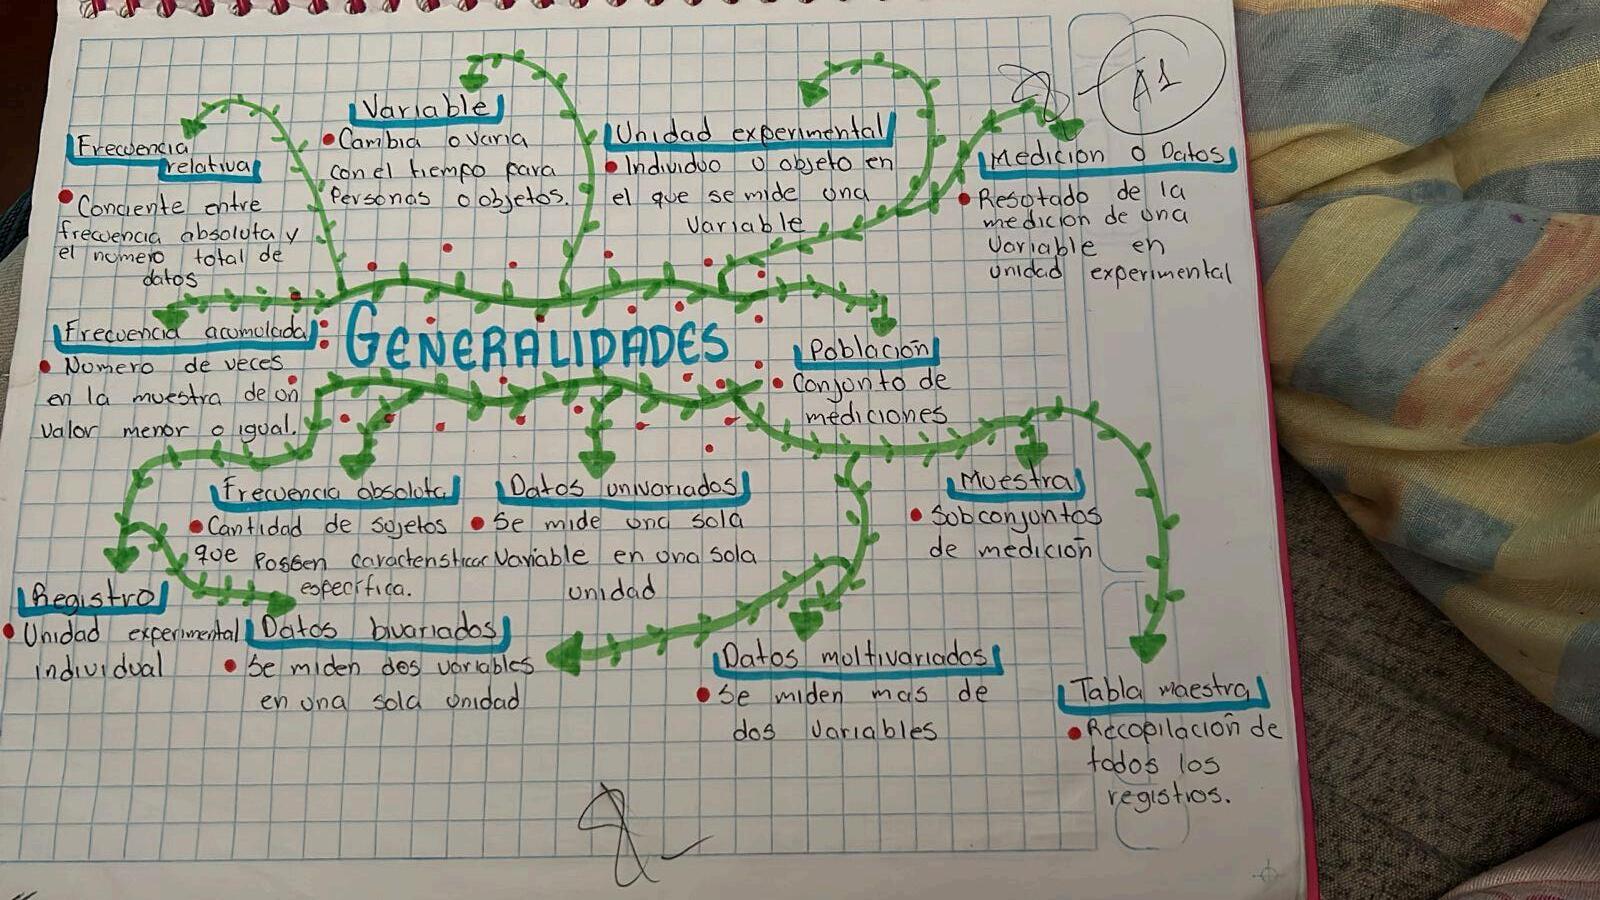 A1
Frecuencia
relativa
Conciente entre
frecuencia absoluta y
el numero total de
datos
Variable
Cambia o varia
con el tiempo para
Personas o objetos.
Unidad experimental
Individuo u objeto en
el que se mide una
Variable
Medicion o Datos
Resultado de la
medicion de una
Variable en
unidad experimental
Frecuencia acumulada
Numero de veces
en la muestra de un
valor menor o igual.
GENERALIDADES
Población
Conjunto de
mediciones
Frecuencia absoluta
Cantidad de sujetos
que Possen caracteristicas
especifica.
Datos univariados
Se mide una sola
Variable en una sola
unidad
Muestra
Subconjuntos
de medición
Registro
Unidad experimental
individual
Datos bivariados
Se miden dos variables
en una sola unidad
Datos multivariados
Se miden mas de
dos variables
Tabla maestra
Recopilación de
todos los
registros.